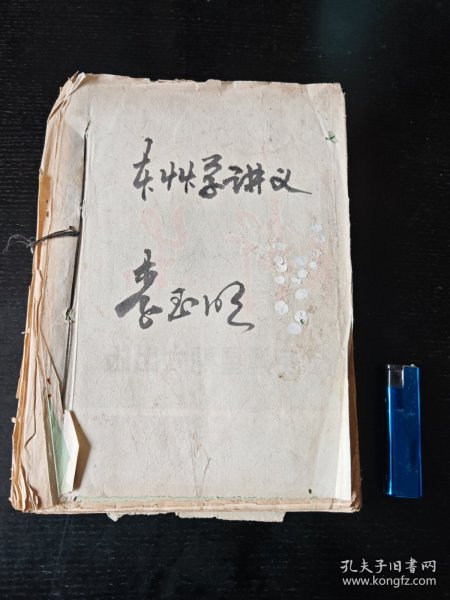 本艸学讲义
李玉明
孔夫子旧书网
www.kongfz.com